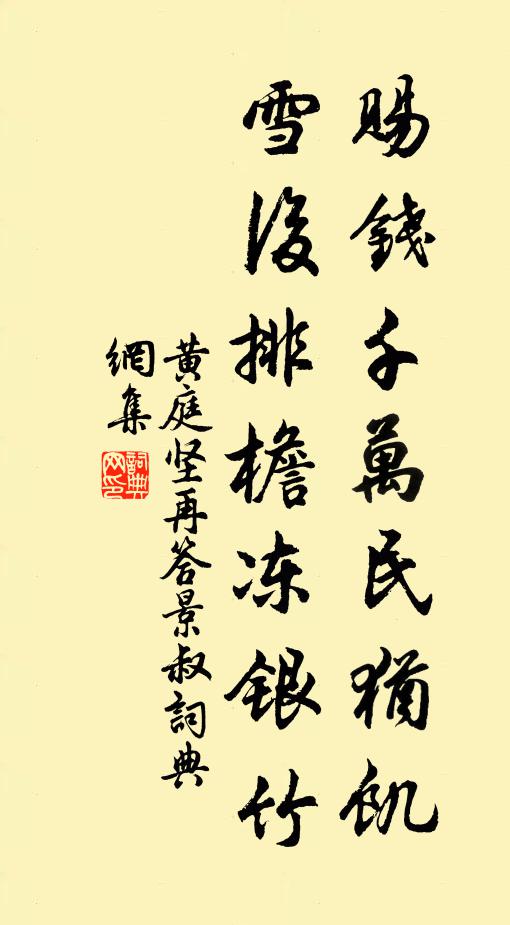 賜錢千萬民猶飢
雪後排檐冻銀竹
黄庭坚再答景叔詞典
網集
詞典網印